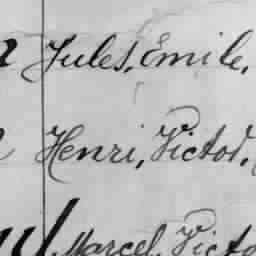 Jules, Emile,
Henri, Victor,
Marcel, Victo